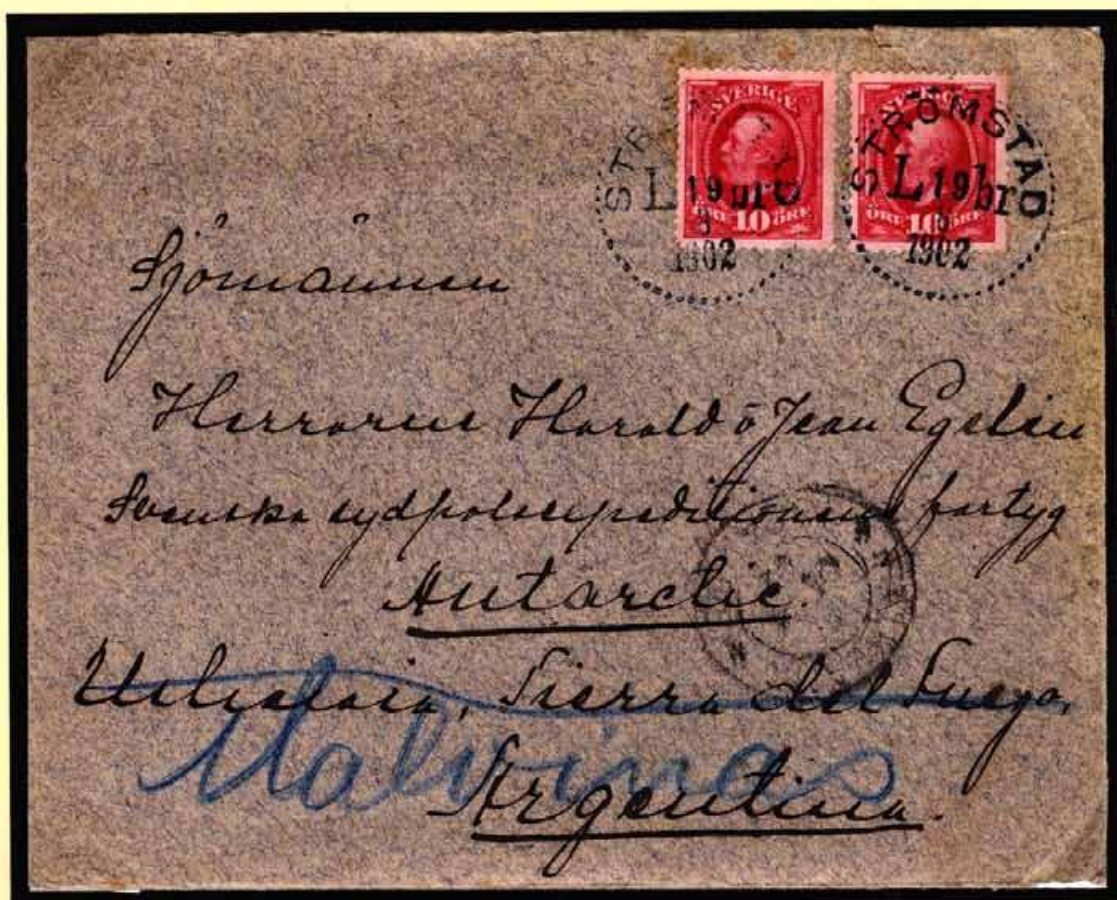 SVERIGE SVERIGE
STRÖMSTAD
L 19 bro L 19 br
ÖRE 10 ÖRE ÖRE 10 ÖRE
3
1902 1902
Sjömännen
Herrarne Harald o Jean
Svenska sydpolsexpeditionens fartyg
Antarctic.
Ushuaia, Tierra del Fuego,
Malvinas
Argentina.